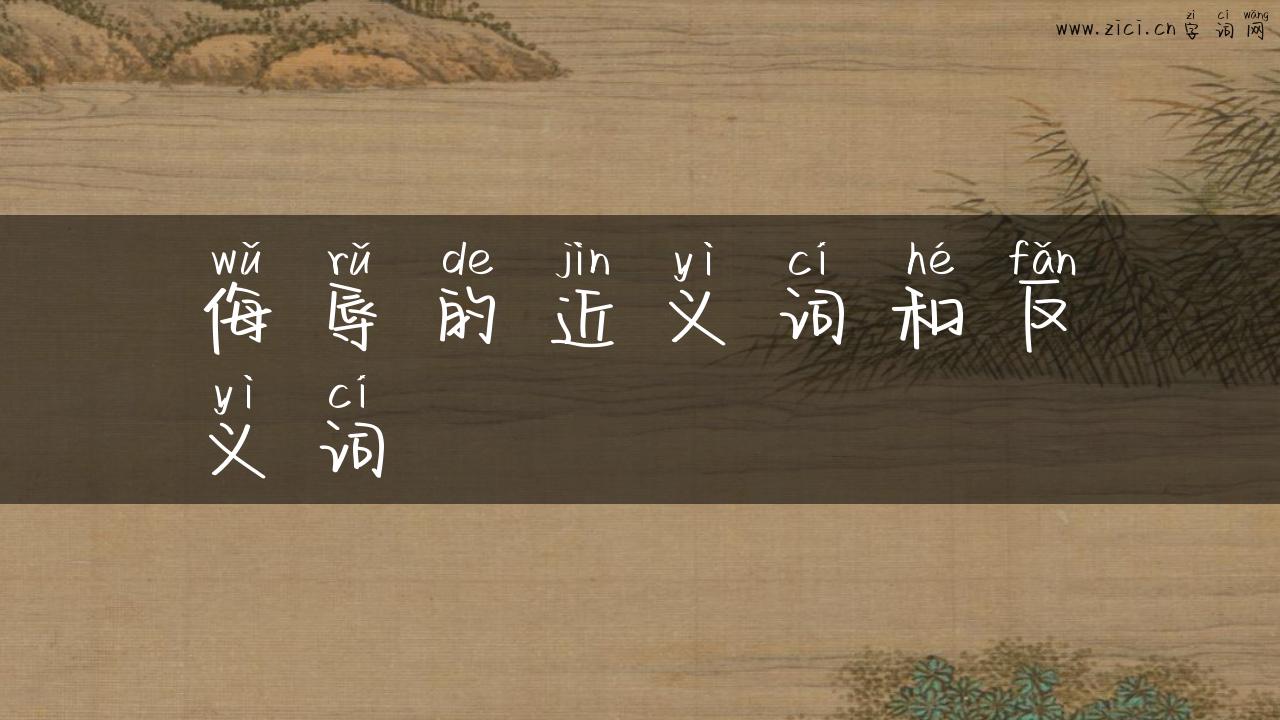 zì cí wǎng
www.zici.cn 字词网
wǔ rǔ de jìn yì cí hé fǎn
侮辱的近义词和反
yì cí
义词